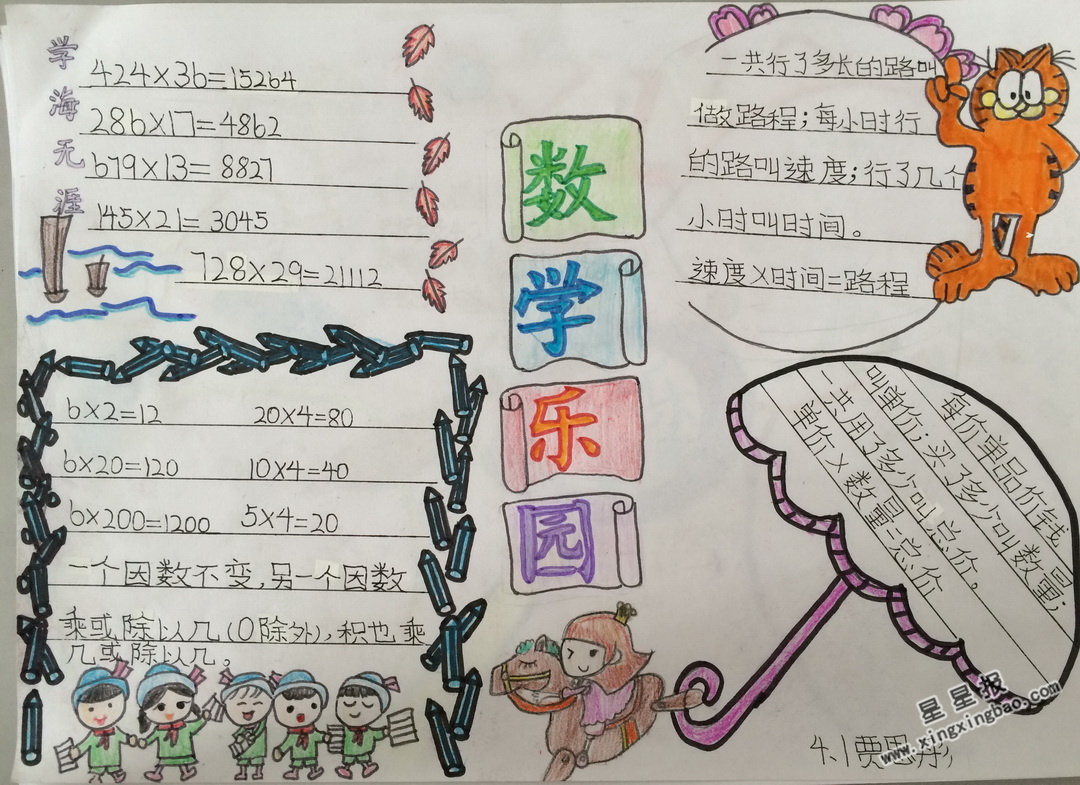 学海无涯
424×36=15264
286×17=4862
679×13=8827
145×21=3045
728×29=21112
数
学
乐
园
一共行了多长的路叫
做路程;每小时行
的路叫速度;行了几个
小时叫时间。
速度×时间=路程
6×2=12 20×4=80
6×20=120 10×4=40
6×200=1200 5×4=20
一个因数不变,另一个因数
乘或除以几(0除外),积也乘
几或除以几。
每价单品价钱
叫单价;买了多少叫数量;
一共用了多少叫总价。
单价×数量=总价
4.1贾思
星星报
www.xingxingbao.com